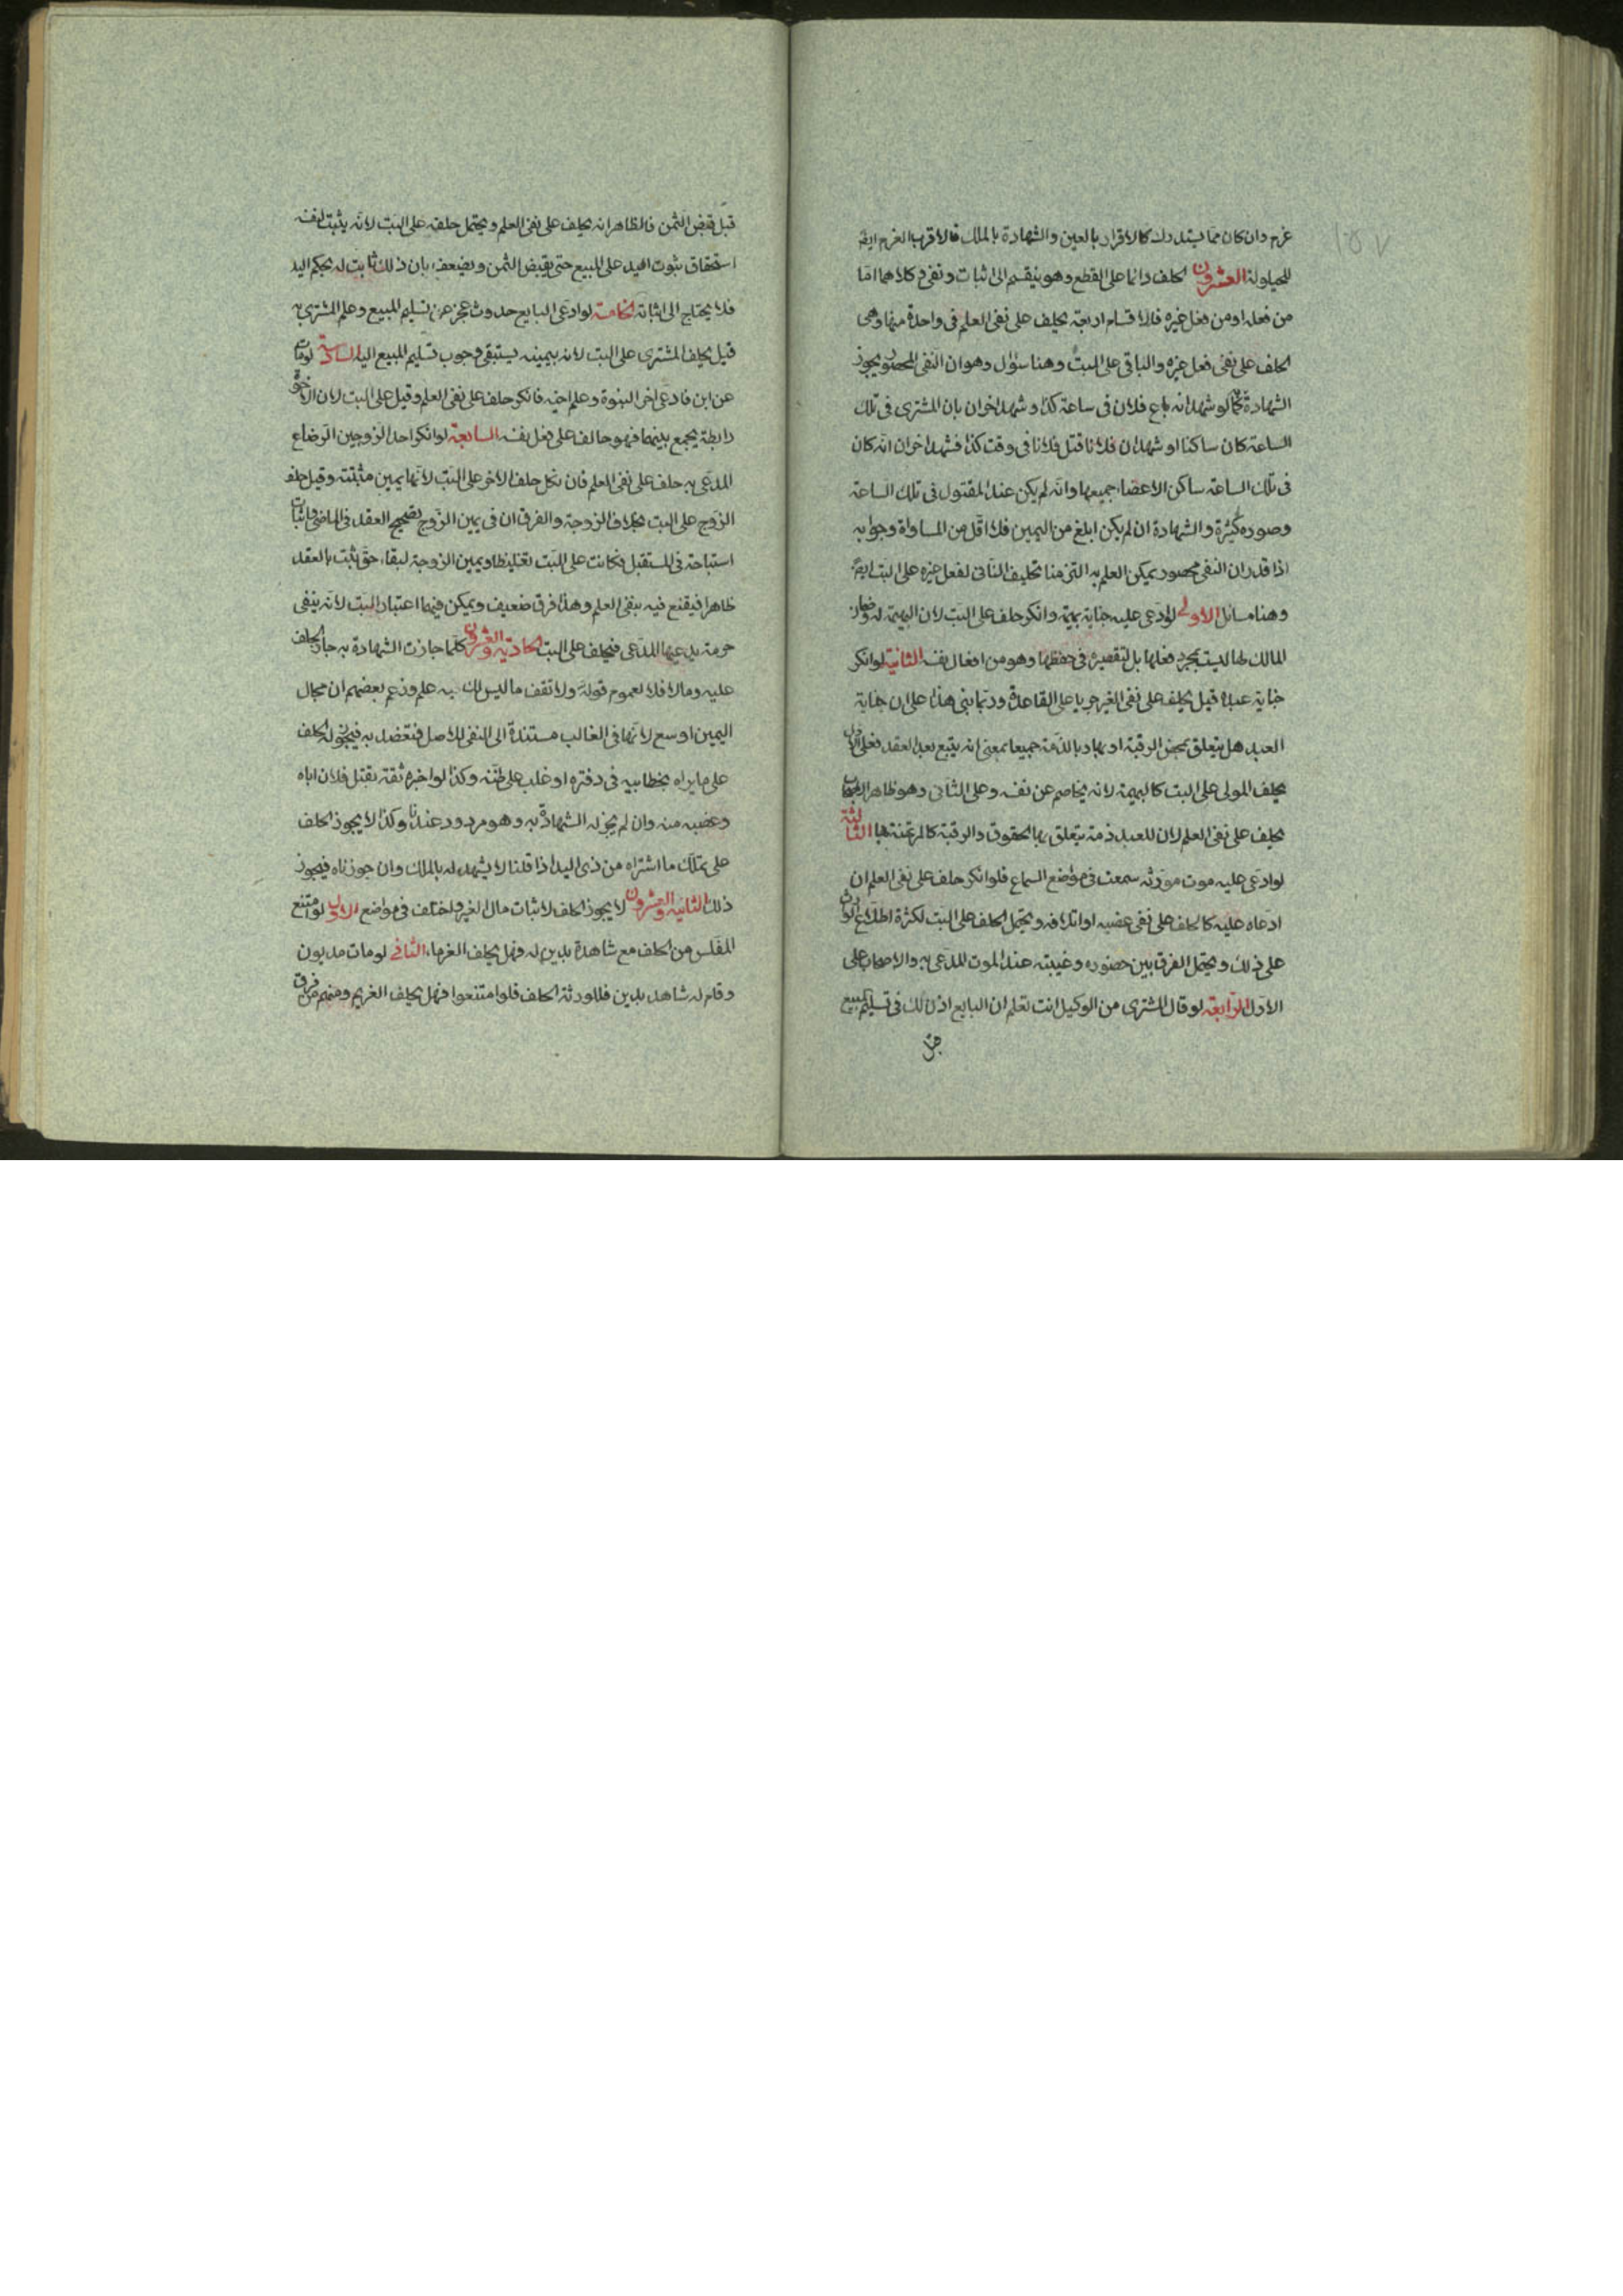 غرم وان كان مما يستدرك كالاقرار بالعين والشهادة بالملك فالاقرب الغرم ايضا
للحيلولة العشرون الحلف دائما على القطع وهو ينقسم الى اثبات ونفي وكلاهما اما
من فعله او من فعل غيره فالاقسام اربعة يحلف على نفى العلم في واحدة منها وهى
الحلف على نفى فعل غيره والباقى على البت وهنا سؤال وهو ان النفى المحصور يجوز
الشهادة كما لو شهد انه باع فلان فى ساعة كذا وشهد اخران بان المشترى فى تلك
الساعة كان ساكنا او شهد ان فلانا قتل فلانا فى وقت كذا فشهد اخران انه كان
فى تلك الساعة ساكن الاعضاء جميعها وانه لم يكن عند المقتول فى تلك الساعة
وصوره كثيرة والشهادة ان لم يكن ابلغ من اليمين فلا اقل من المساواة وجوابه
اذا قدر ان النفى محصور يمكن العلم به التزمنا تحليف النافى لفعل غيره على البت ايضا
وهنا مسائل الاولى لو ادعى عليه جناية بهيمة وانكر حلف على البت لان البهيمة له وضمان
المالك لها ليست بمجرد فعلها بل لتقصيره فى حفظها وهو من افعال نفسه الثانية لو انكر
جناية عبده قيل يحلف على نفى الغير جريا على القاعدة وربما بنى هذا على ان جناية
العبد هل يتعلق بمحض الرقبة او بها وبالذمة جميعا بمعنى انه يتبع بعد العقد فعلى الاول
يحلف المولى على البت كالبهيمة لانه يخاصم عن نفسه وعلى الثانى وهو ظاهر الاصحاب
يحلف على نفى العلم لان للعبد ذمة يتعلق بها الحقوق والرقبة كالمرتهنة بها الثالثة
لو ادعى عليه موت مورثه سمعت فى مواضع السماع فلو انكر حلف على نفى العلم ان
ادعاه عليه كالحلف على نفى غصبه او اتلافه ويحتمل الحلف على البت لكثرة اطلاع الوارث
على ذلك ويحتمل الفرق بين حضوره وغيبته عند الموت المدعى به والاصحاب على
الاول الرابعة لو قال المشترى من الوكيل انت تعلم ان البايع اذن لك فى تسليم المبيع
قبل قبض الثمن فالظاهر انه يحلف على نفى العلم ويحتمل حلفه على البت لانه يثبت لنفسه
استحقاق ثبوت اليد على المبيع حتى يقبض الثمن ويضعف بان ذلك ثابت له بحكم اليد
فلا يحتاج الى اثباته الخامسة لو ادعى البايع حدوث عجز عن تسليم المبيع وعلم المشترى به
قيل يحلف المشترى على البت لانه بيمينه يستبقى وجوب تسليم المبيع اليه السادسة لو مات
عن ابن فادعى اخر البنوة وعلم اخيه فانكر حلف على نفى العلم وقيل على البت لان الاخوة
رابطة يجمع بينهما فهو حالف على فعل نفسه السابعة لو انكر احد الزوجين الرضاع
المدعى به حلف على نفى العلم فان نكل حلف الاخر على البت لانها يمين مثبتة وقيل حلف
الزوج على البت بخلاف الزوجة والفرق ان فى يمين الزوج تصحيح العقد فى الماضى واثبات
استباحة فى المستقبل فكانت على البت تغليظا ويمين الزوجة لبقاء حق ثبت بالعقد
ظاهرا فيقنع فيه بنفى العلم وهذا فرق ضعيف ويمكن فيهما اعتبار البت لانه ينفى
حرمة يدعيها المدعى فيحلف على البت الحادية والعشرون كلما جازت الشهادة به جاز الحلف
عليه ومالا فلا لعموم قوله ولا تقف ما ليس لك به علم وزعم بعضهم ان مجال
اليمين اوسع لانها فى الغالب مستندة الى النفى للاصل فتعضد به فيجوز له الحلف
على ما يراه بخط ابيه فى دفتره او غلب على ظنه وكذا لو اخبره ثقة بقتل فلان اباه
وغصبه منه وان لم يجز له الشهادة به وهو مردود عندنا وكذا لا يجوز الحلف
على تملك ما اشتراه من ذى اليد اذا قلنا لا يشهد له بالملك وان جوزناه فيجوز
ذلك الثانية والعشرون لا يجوز الحلف لاثبات مال الغير واختلف فى مواضع الاول لو امتنع
المفلس من الحلف مع شاهده بدين له فهل يحلف الغرماء الثانى لو مات مديون
وقام له شاهد بدين فللورثة الحلف فلو امتنعوا فهل يحلف الغريم ومنهم من فرق